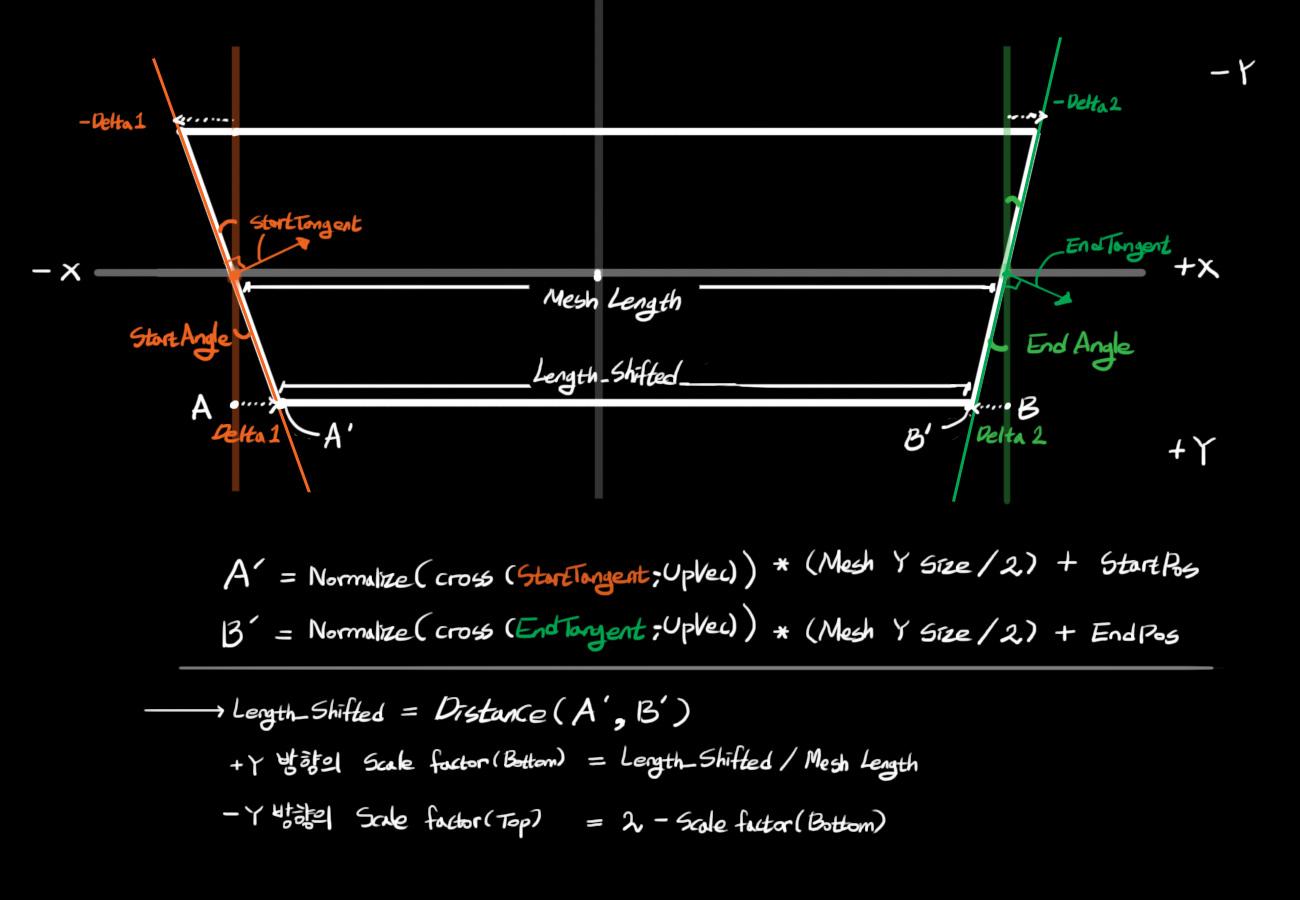 -Y
-Delta1
-Delta2
StartTangent
EndTangent
-X
+X
Mesh Length
StartAngle
End Angle
Length_Shifted
A
B
Delta1
A'
B'
Delta 2
+Y
A' = Normalize(cross (StartTangent;UpVec)) * (Mesh Y Size/2) + StartPos
B' = Normalize(cross (EndTangent;UpVec)) * (Mesh Y Size/2) + EndPos
→ Length_Shifted = Distance(A', B')
+Y 방향의 Scale factor(Bottom) = Length_Shifted / Mesh Length
-Y 방향의 Scale factor(Top) = 2 - Scale factor(Bottom)